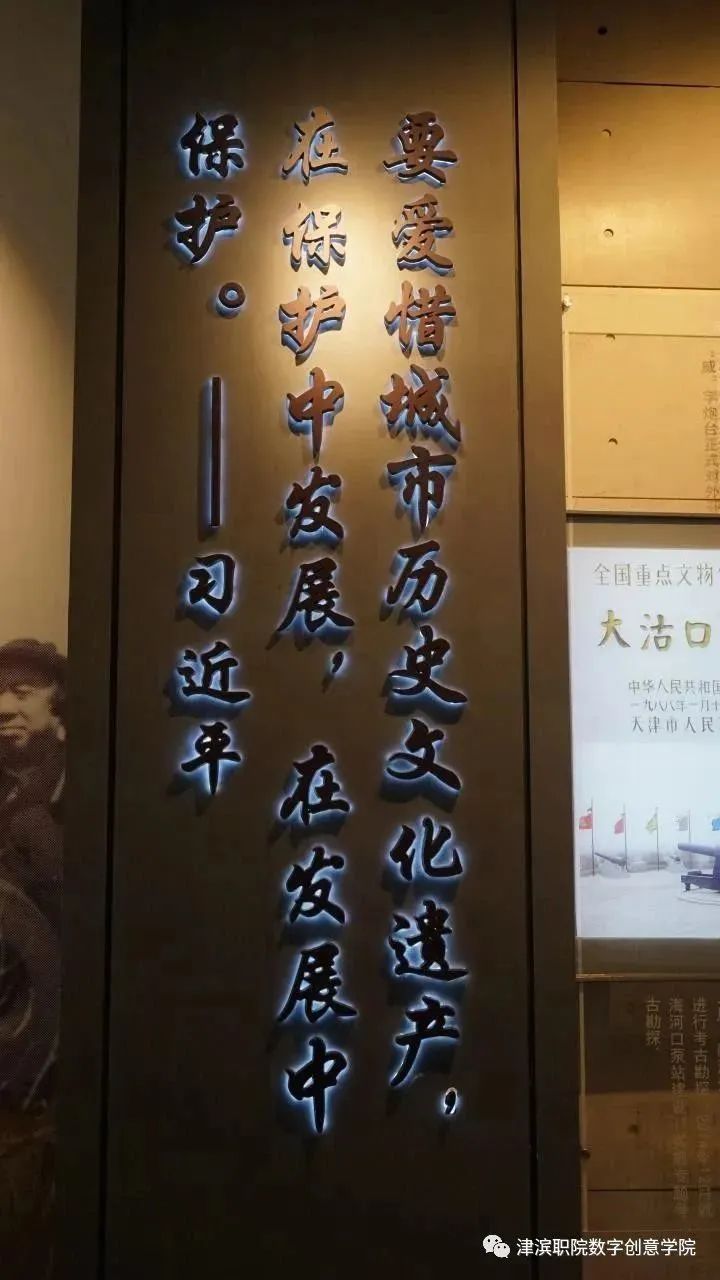 要爱惜城市历史文化遗产，
在保护中发展，在发展中
保护。——习近平
全国重点文物
大沽口
中华人民共和国
一九八八年一月十
天津市人民
进行考古勘探
海河口泵站建设
古勘探.
津滨职院数字创意学院